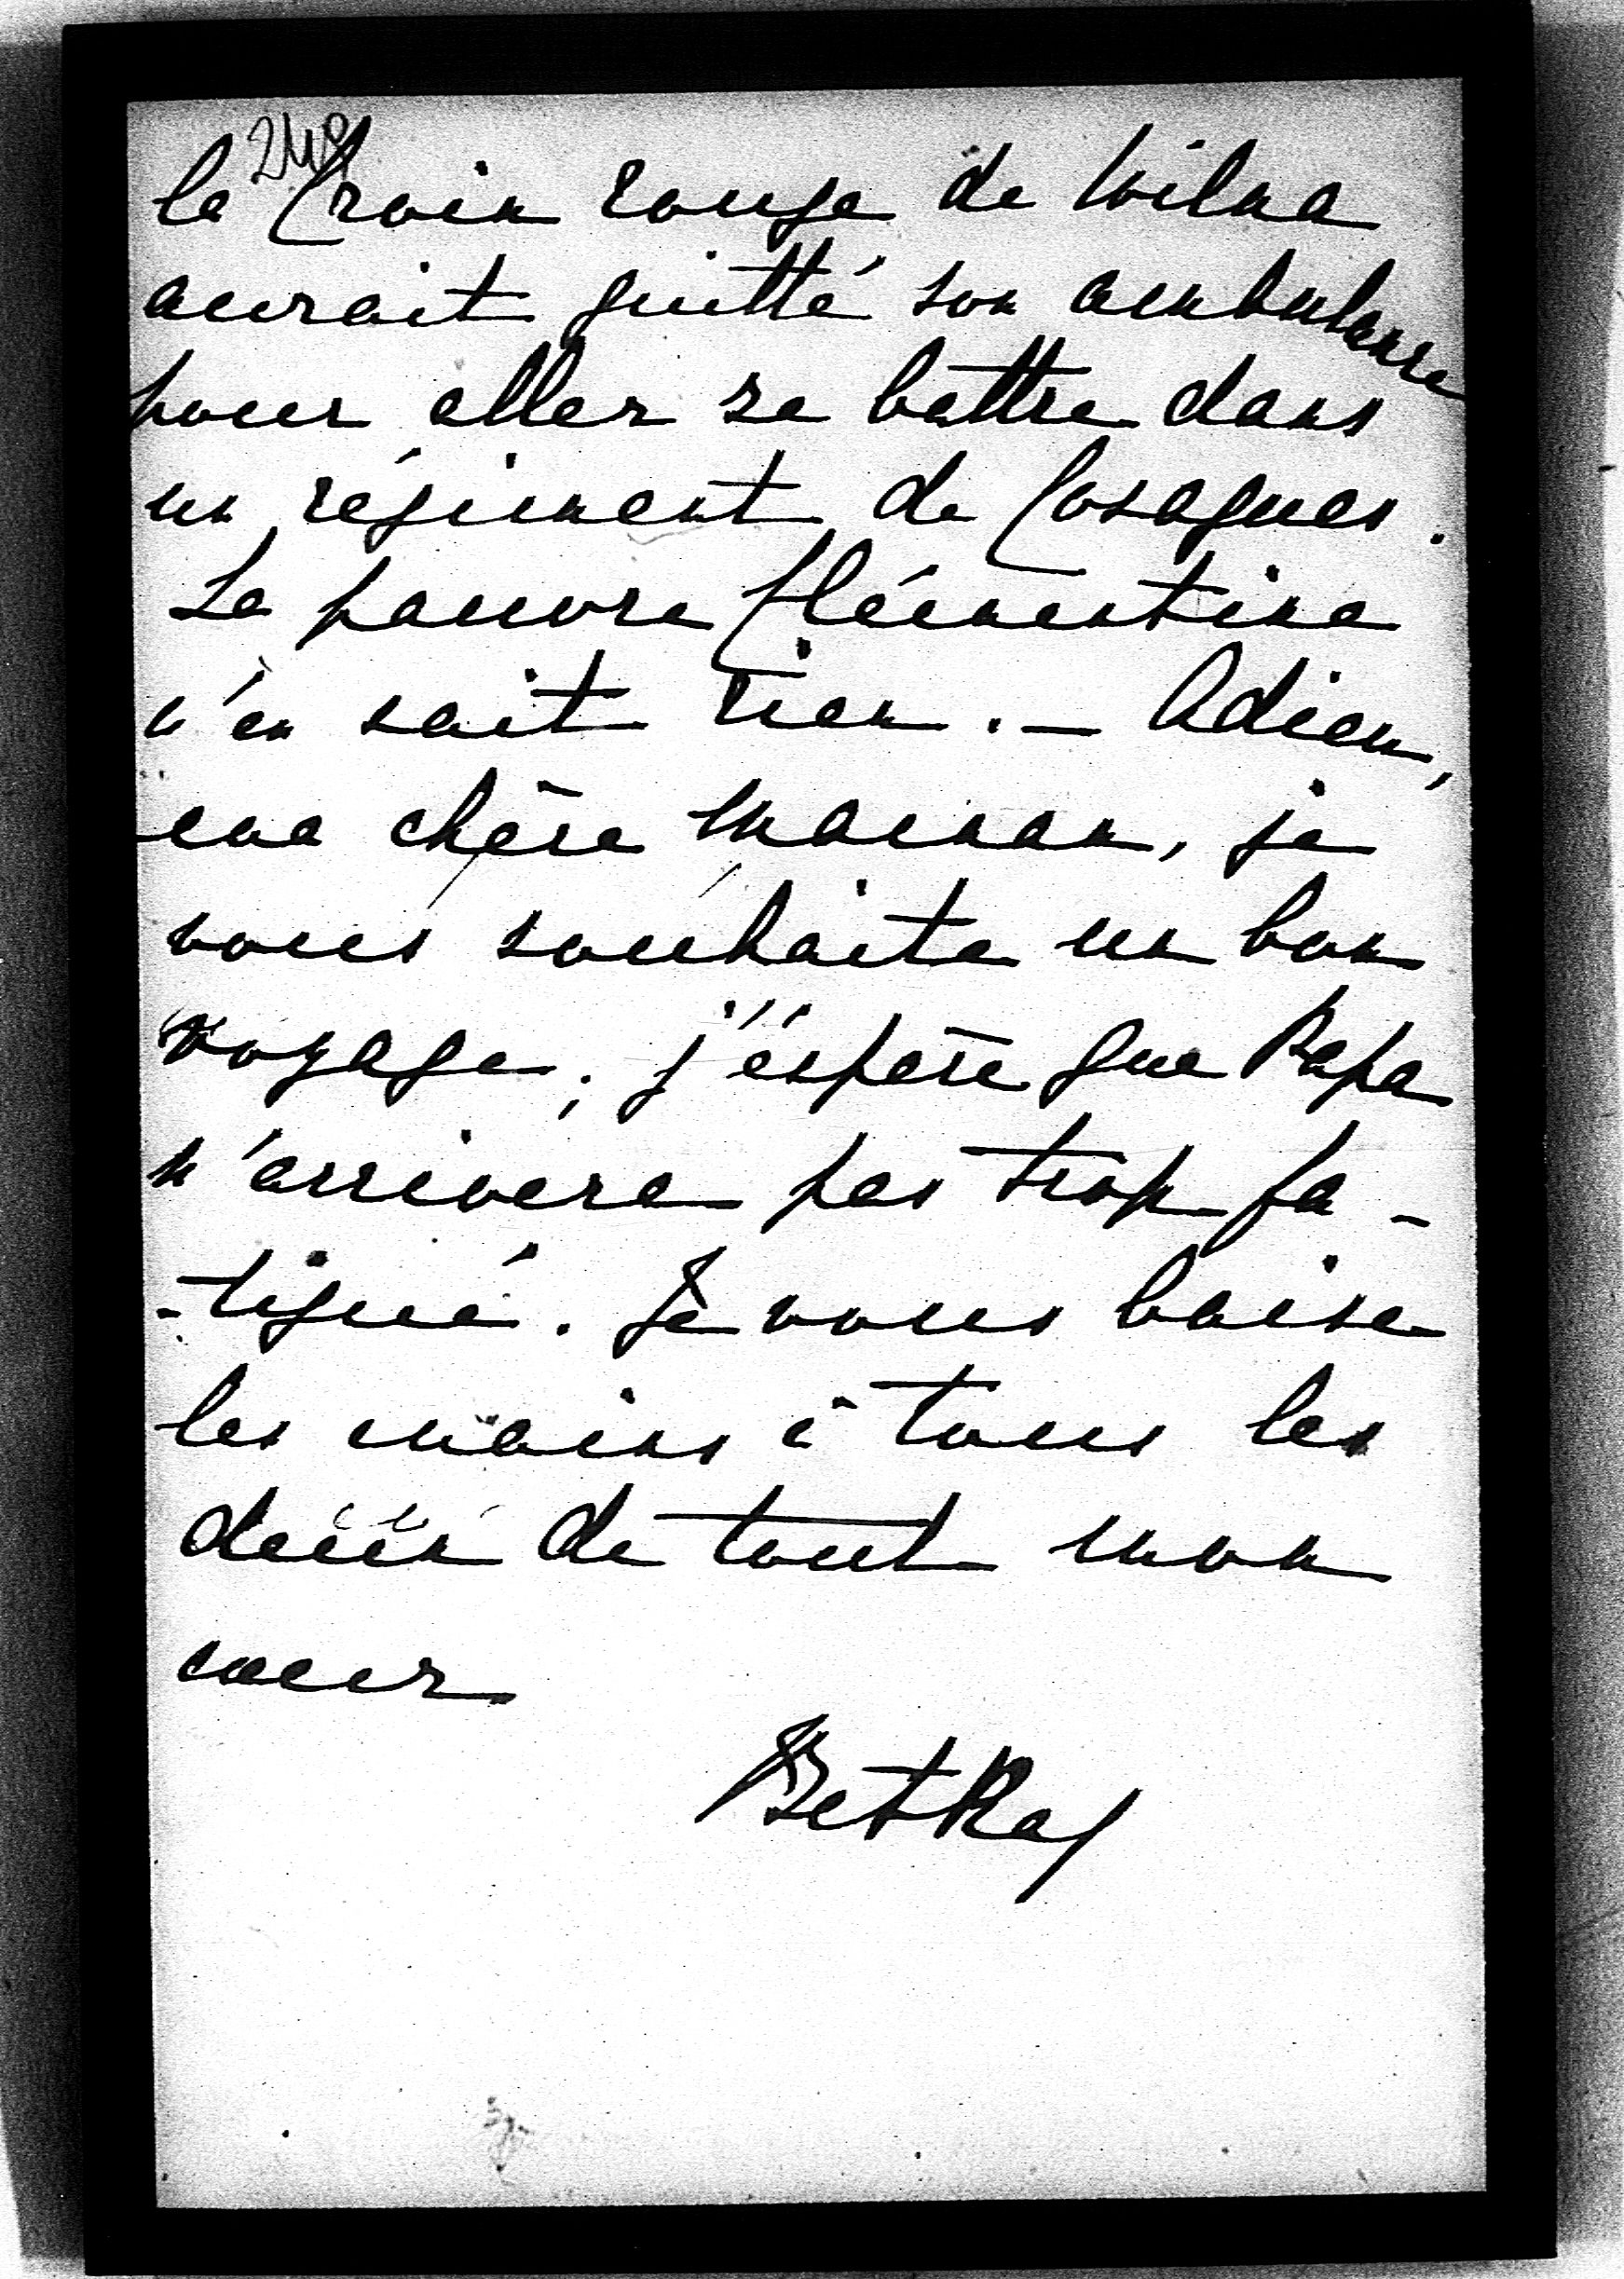 la Croix rouge de Wilna
aurait quitté son ambulance
pour aller se battre dans
un régiment de Cosaques.
La pauvre Clémentine
n'en sait rien. — Adieu,
ma chère Maman, je
vous souhaite un bon
voyage; j'éspère que Papa
n'arrivera pas trop fa-
-tigué. Je vous baise
les mains à tous les
deux de tout mon
cœur
BetKa